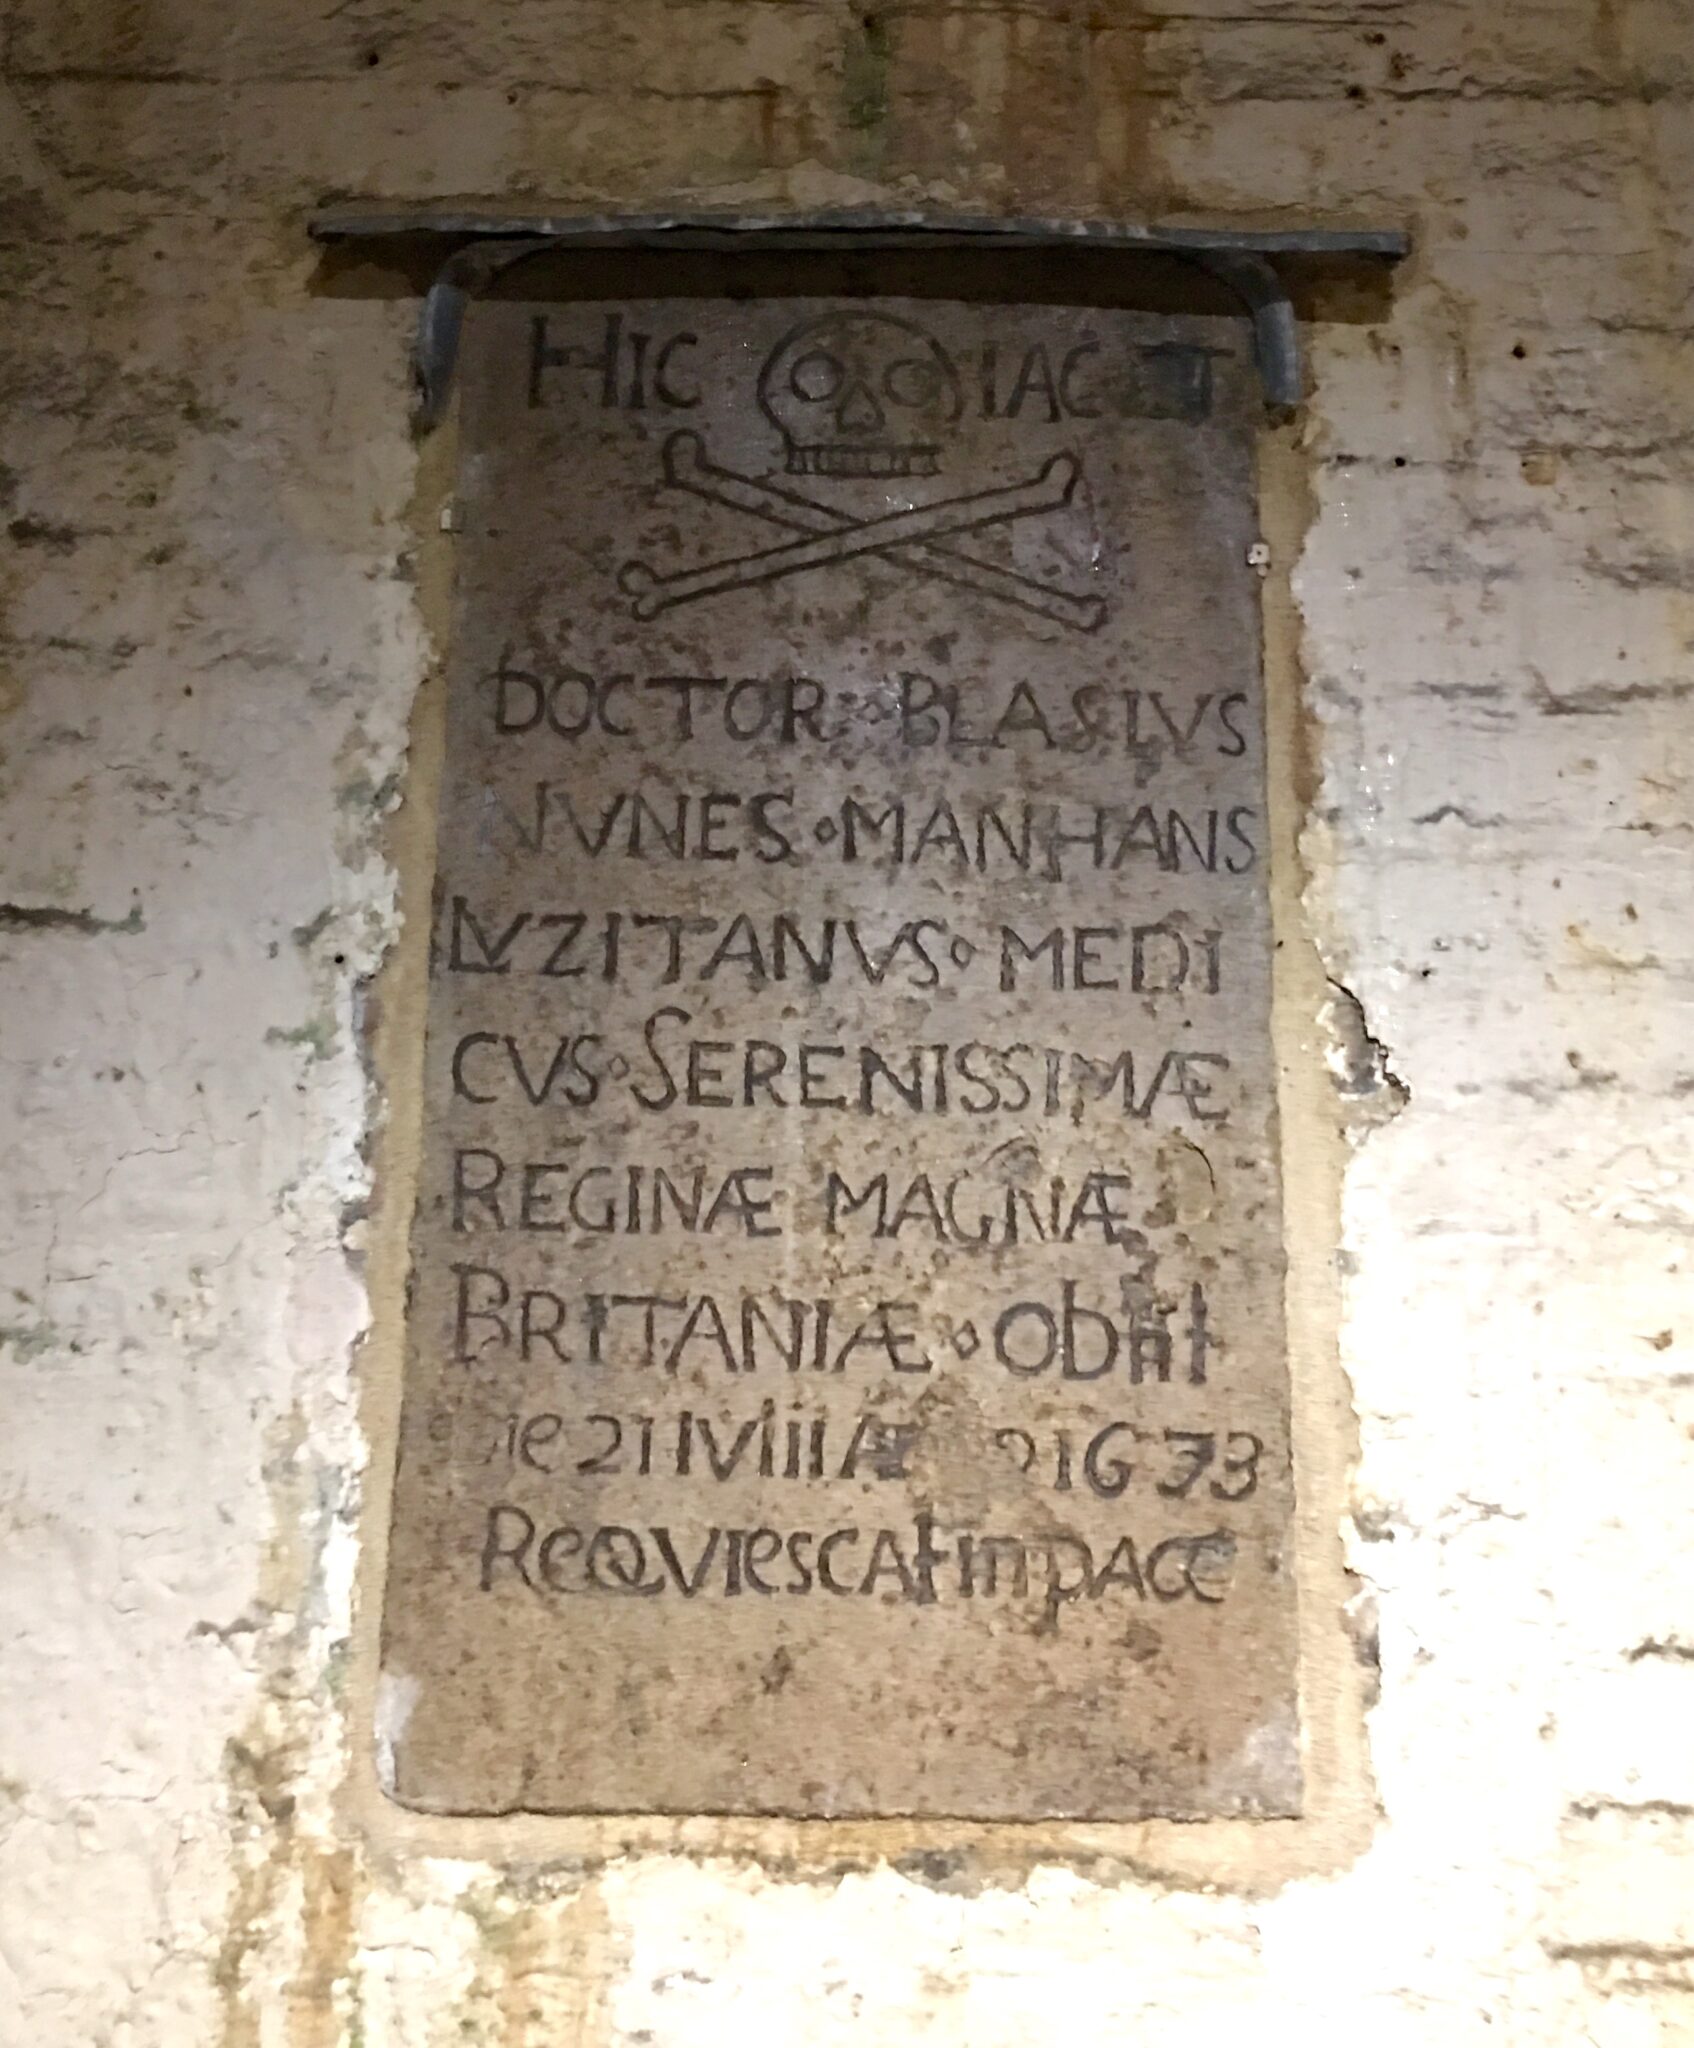 HIC IACET
DOCTOR · BLASIVS
NVNES · MANHANS
LVZITANVS · MEDI
CVS · SERENISSIMÆ
REGINÆ MAGNÆ
BRITANIÆ · Obiit
Die 21 IVlii 1673
ReQVIesCAt in pACe